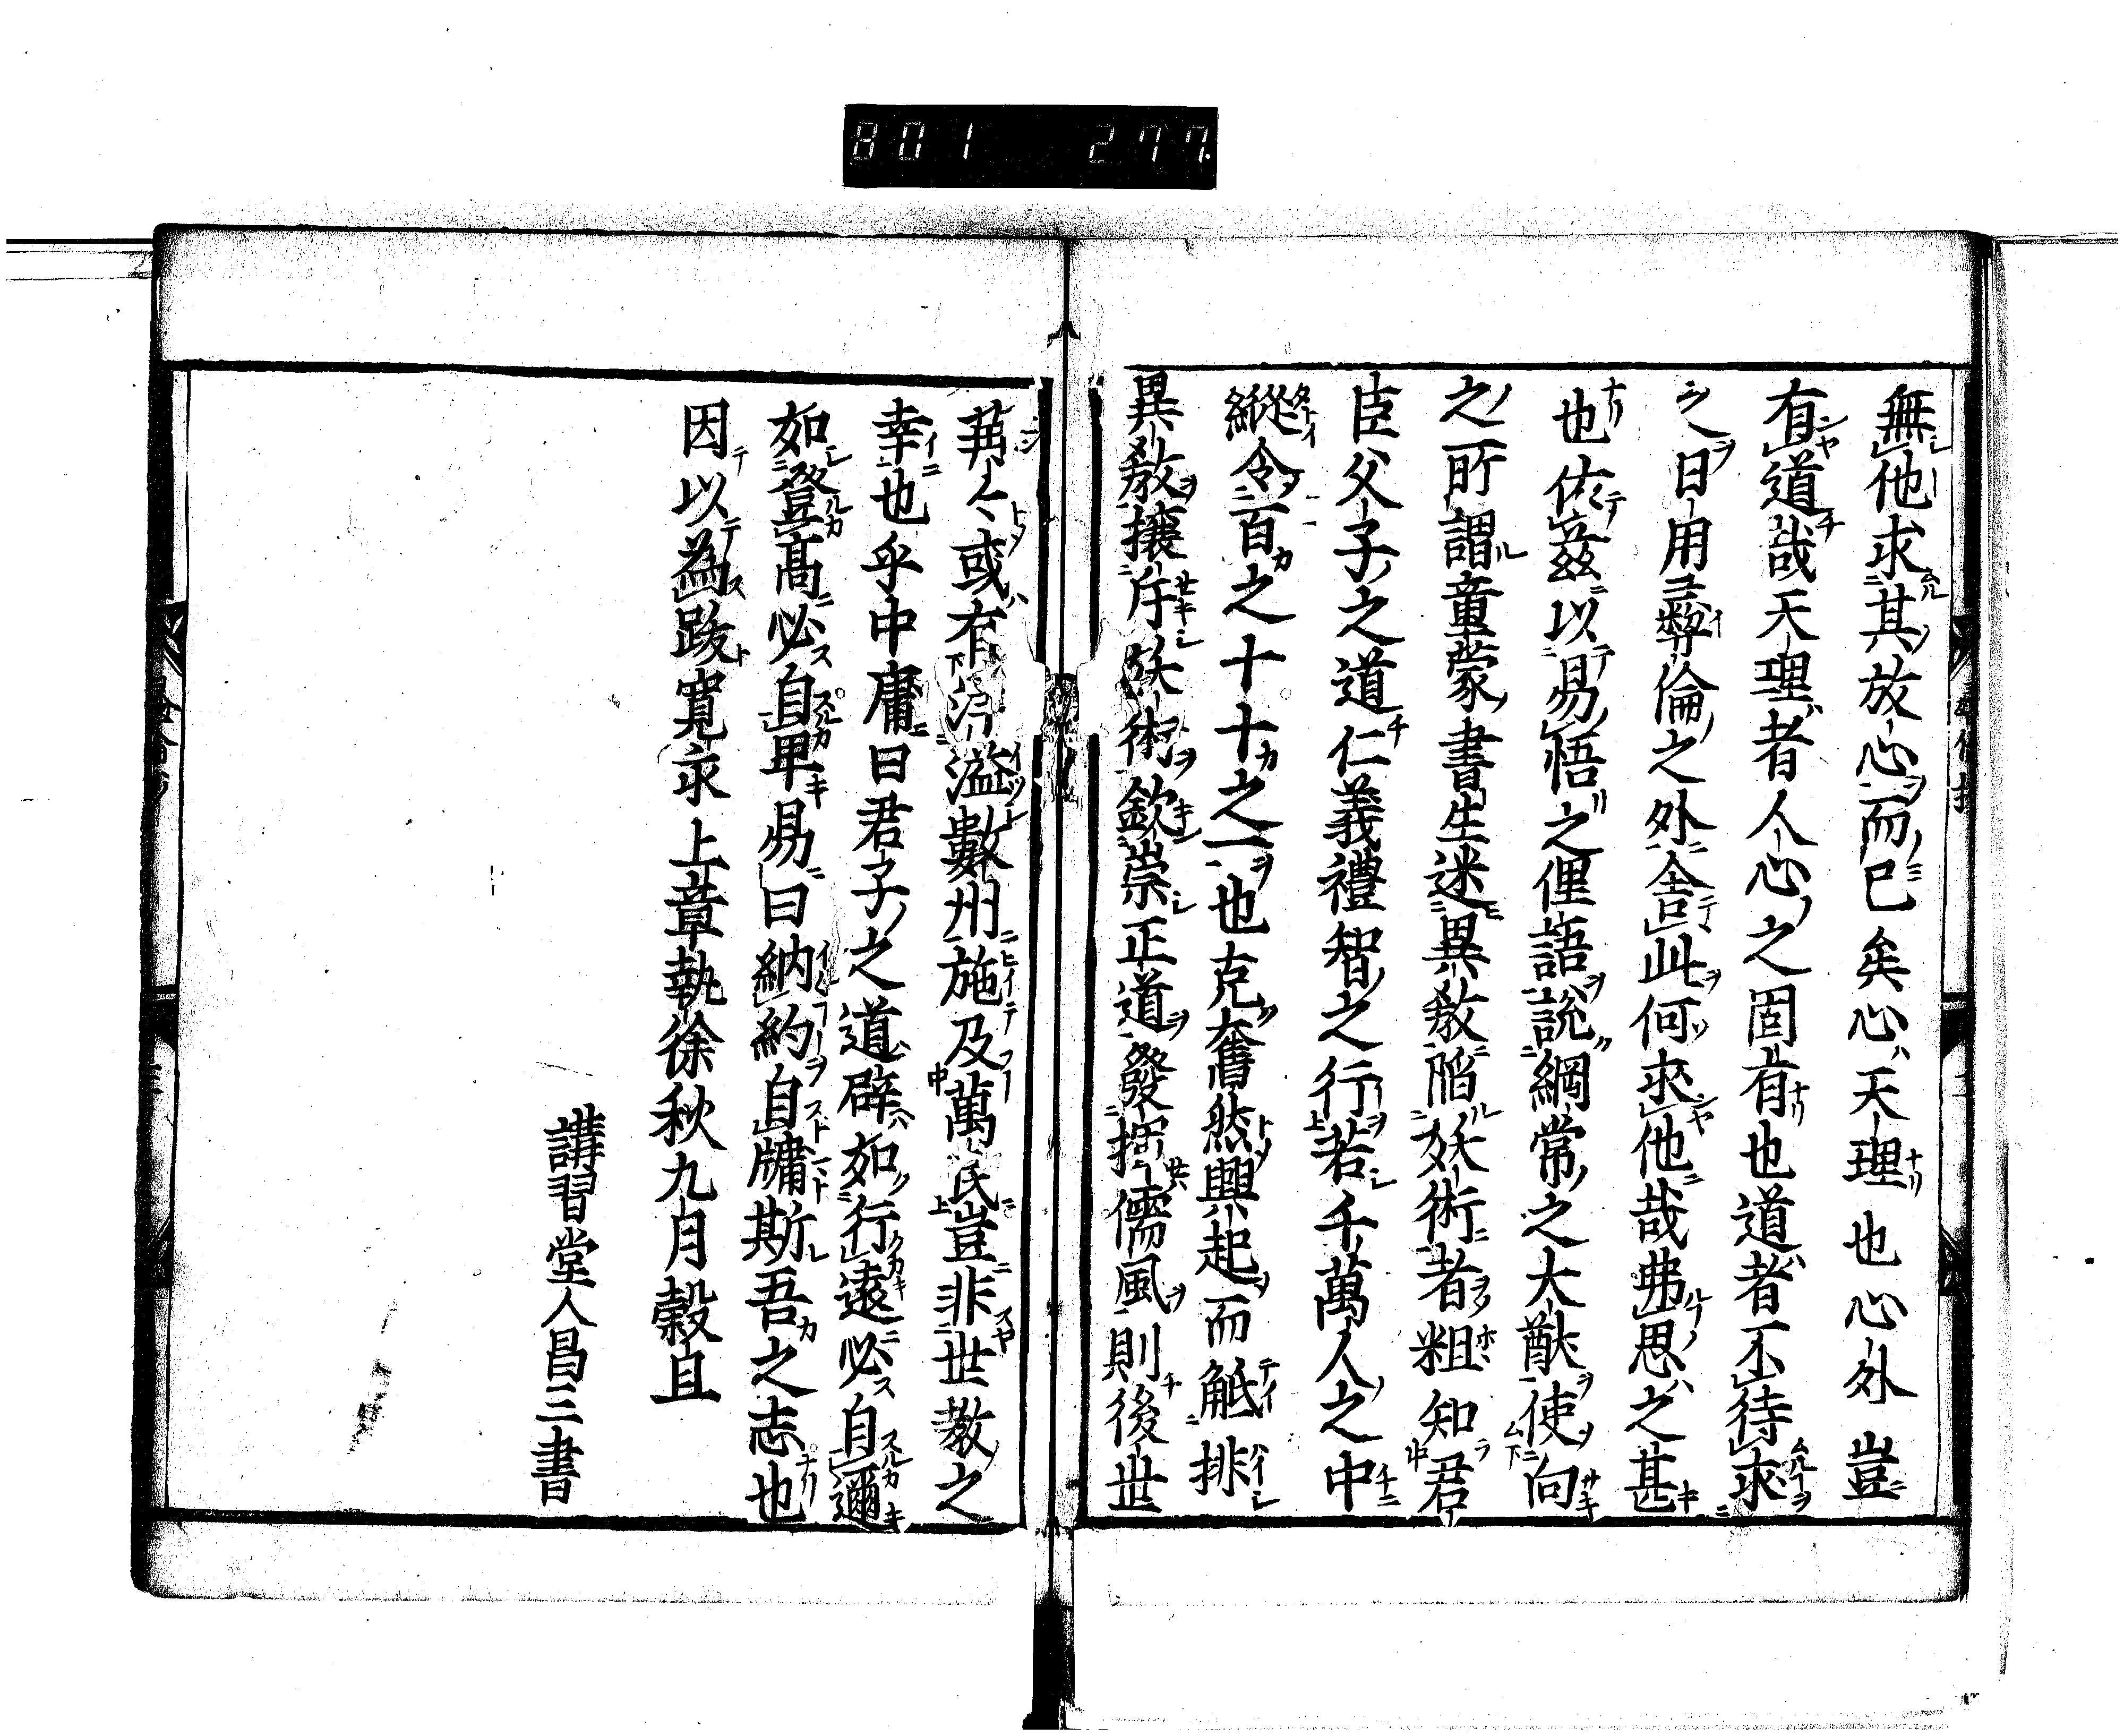 801 277
無他求其放心而已矣心天理也心外豈
有道哉天理者人心之固有也道者不待求
之日用彝倫之外舎此何求他哉弗思之甚
也依茲以易悟之俚語説綱常之大猷使向
之所謂童蒙書生迷異教陥妖術者粗知君
臣父子之道仁義禮智之行若千萬人之中
縱令百之十十之一也克奮然興起而觝排
異教攘斥妖術欽崇正道發揮儒風則後世
苒々或有浮溢數州施及萬民豈非世教之
幸也乎中庸曰君子之道辟如行遠必自邇
如登高必自卑易曰納約自牖斯吾之志也
因以為跋寛永上章執徐秋九月穀旦
講習堂人昌三書